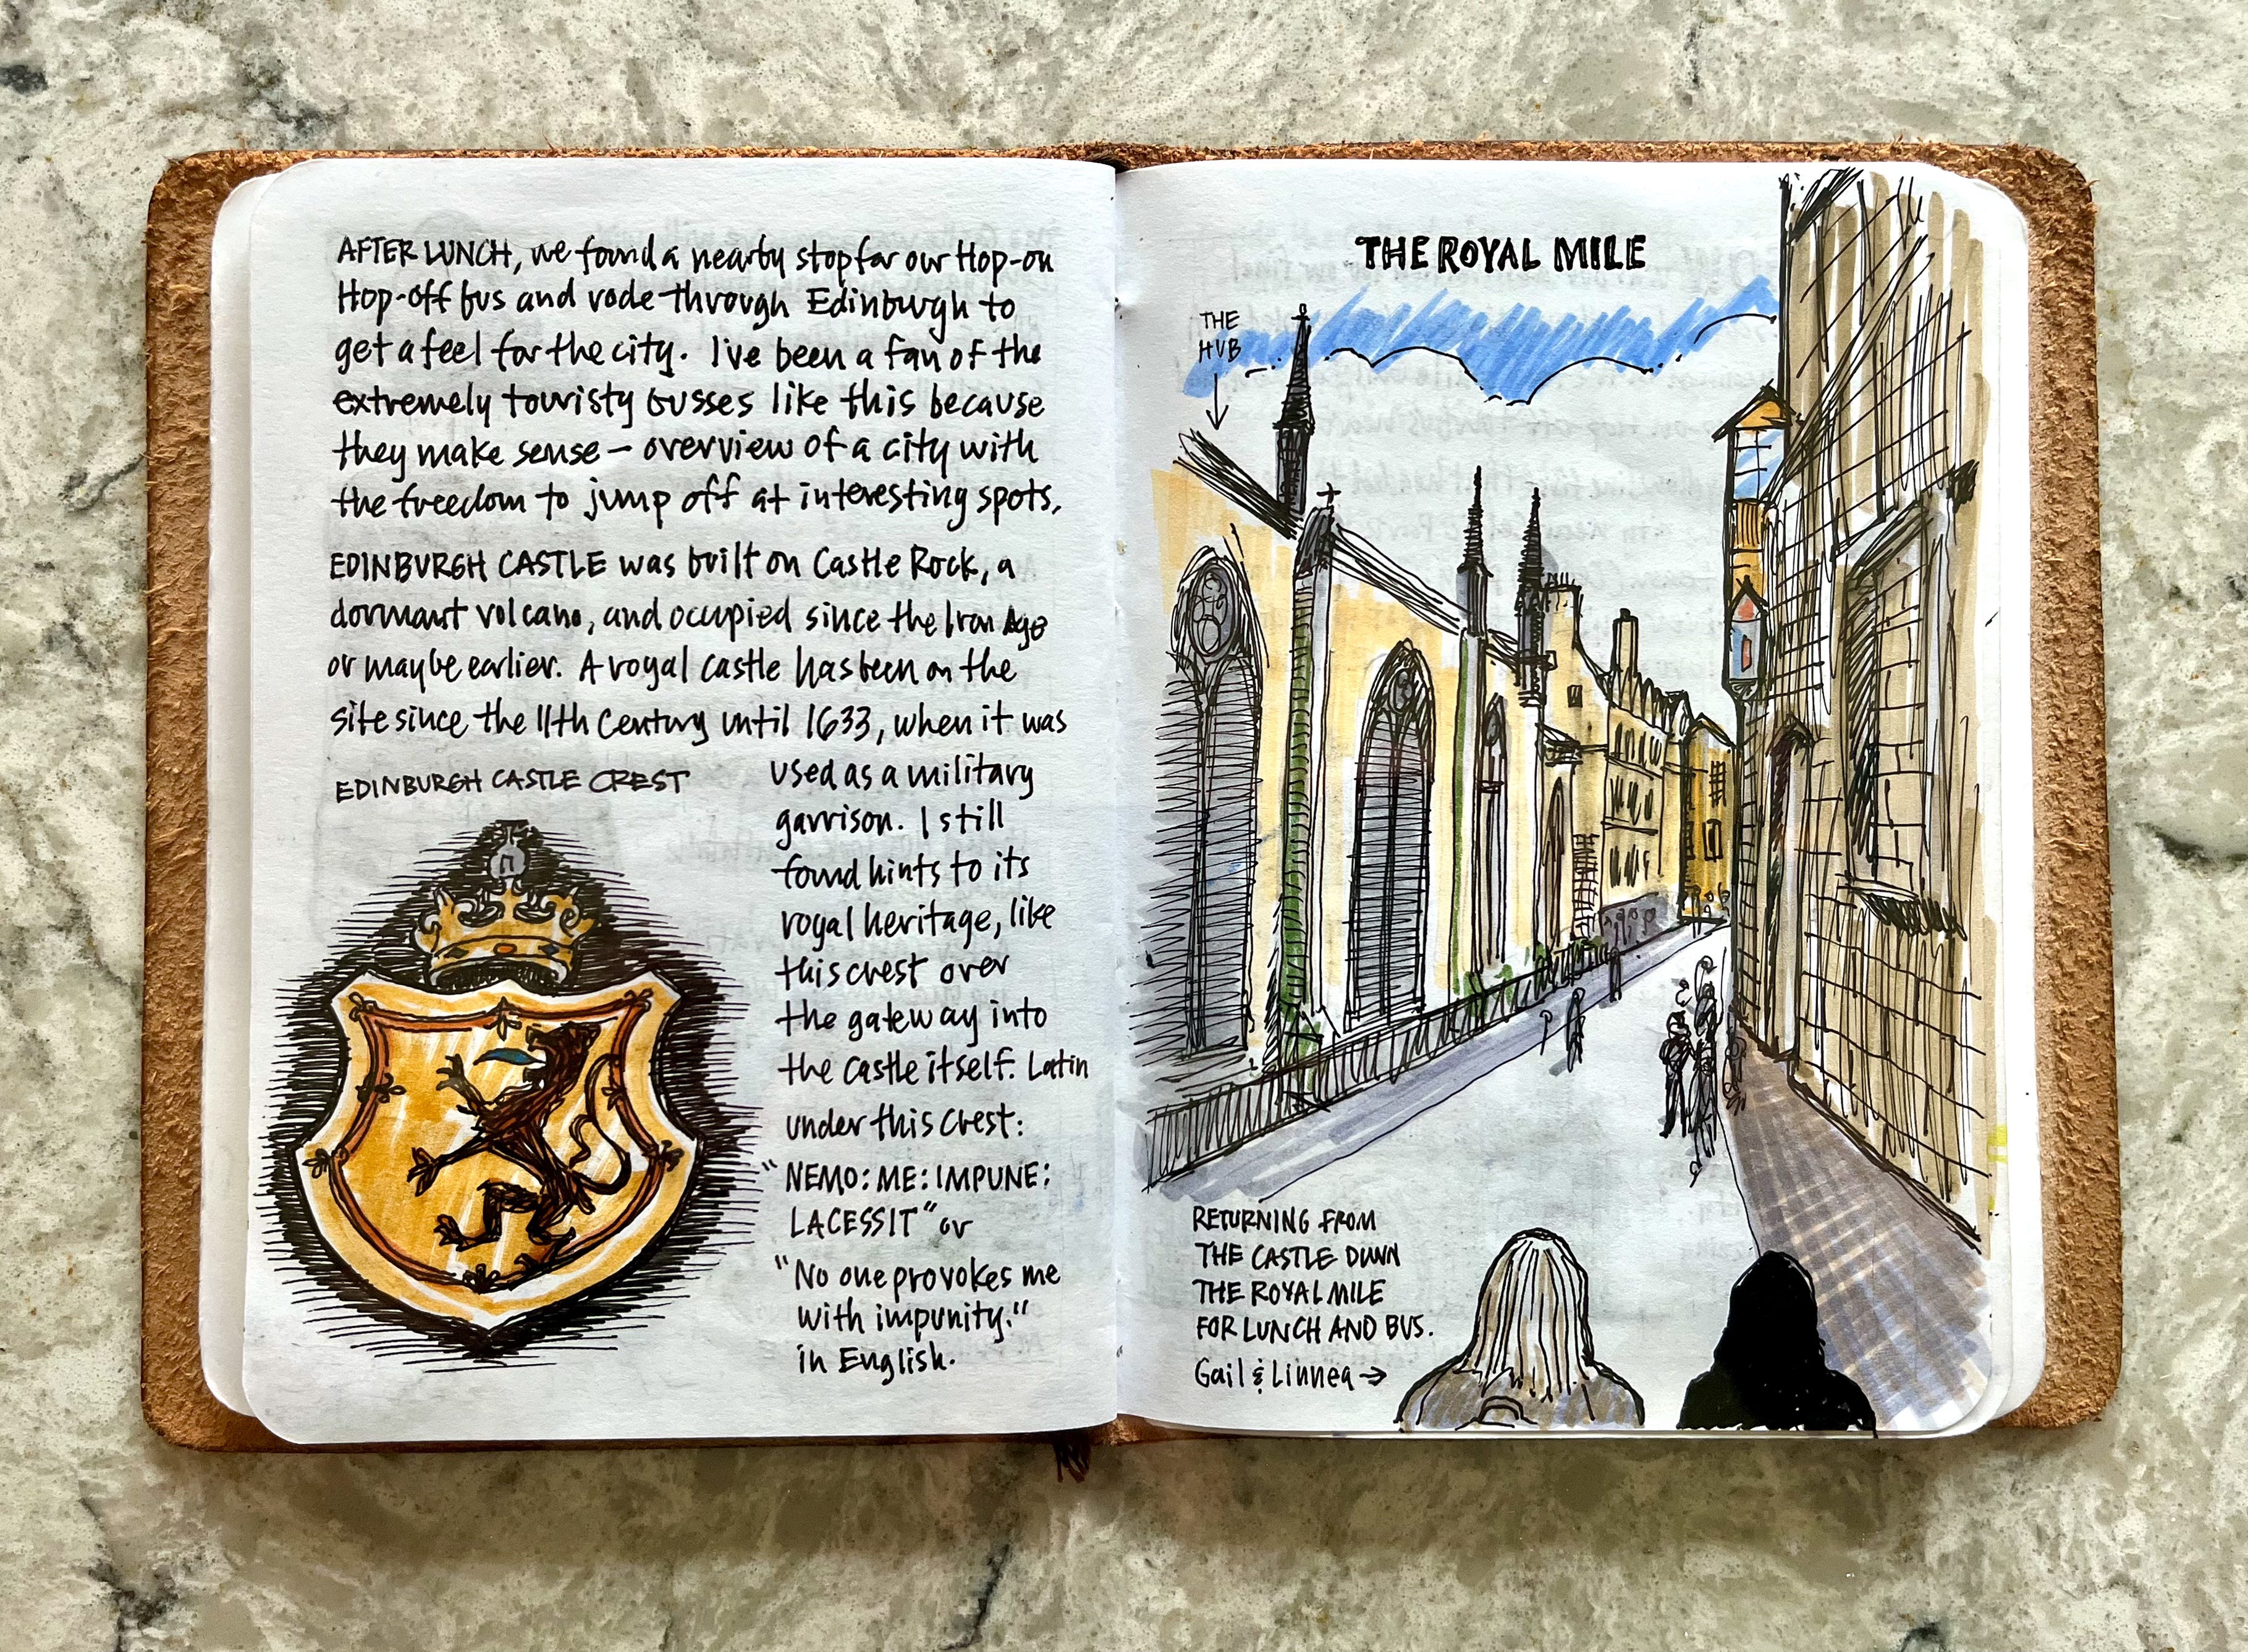 AFTER LUNCH, we found a nearby stop for our Hop-on
Hop-off bus and rode through Edinburgh to
get a feel for the city. I've been a fan of the
extremely touristy busses like this because
they make sense — overview of a city with
the freedom to jump off at interesting spots.
EDINBURGH CASTLE was built on Castle Rock, a
dormant volcano, and occupied since the Iron Age
or maybe earlier. A royal castle has been on the
site since the 11th Century until 1633, when it was
used as a military
garrison. I still
found hints to its
royal heritage, like
this crest over
the gateway into
the castle itself. Latin
under this crest:
"NEMO: ME: IMPUNE:
LACESSIT" or
"No one provokes me
with impunity."
in English.
EDINBURGH CASTLE CREST
THE ROYAL MILE
THE
HUB
RETURNING FROM
THE CASTLE DOWN
THE ROYAL MILE
FOR LUNCH AND BUS.
Gail & Linnea →